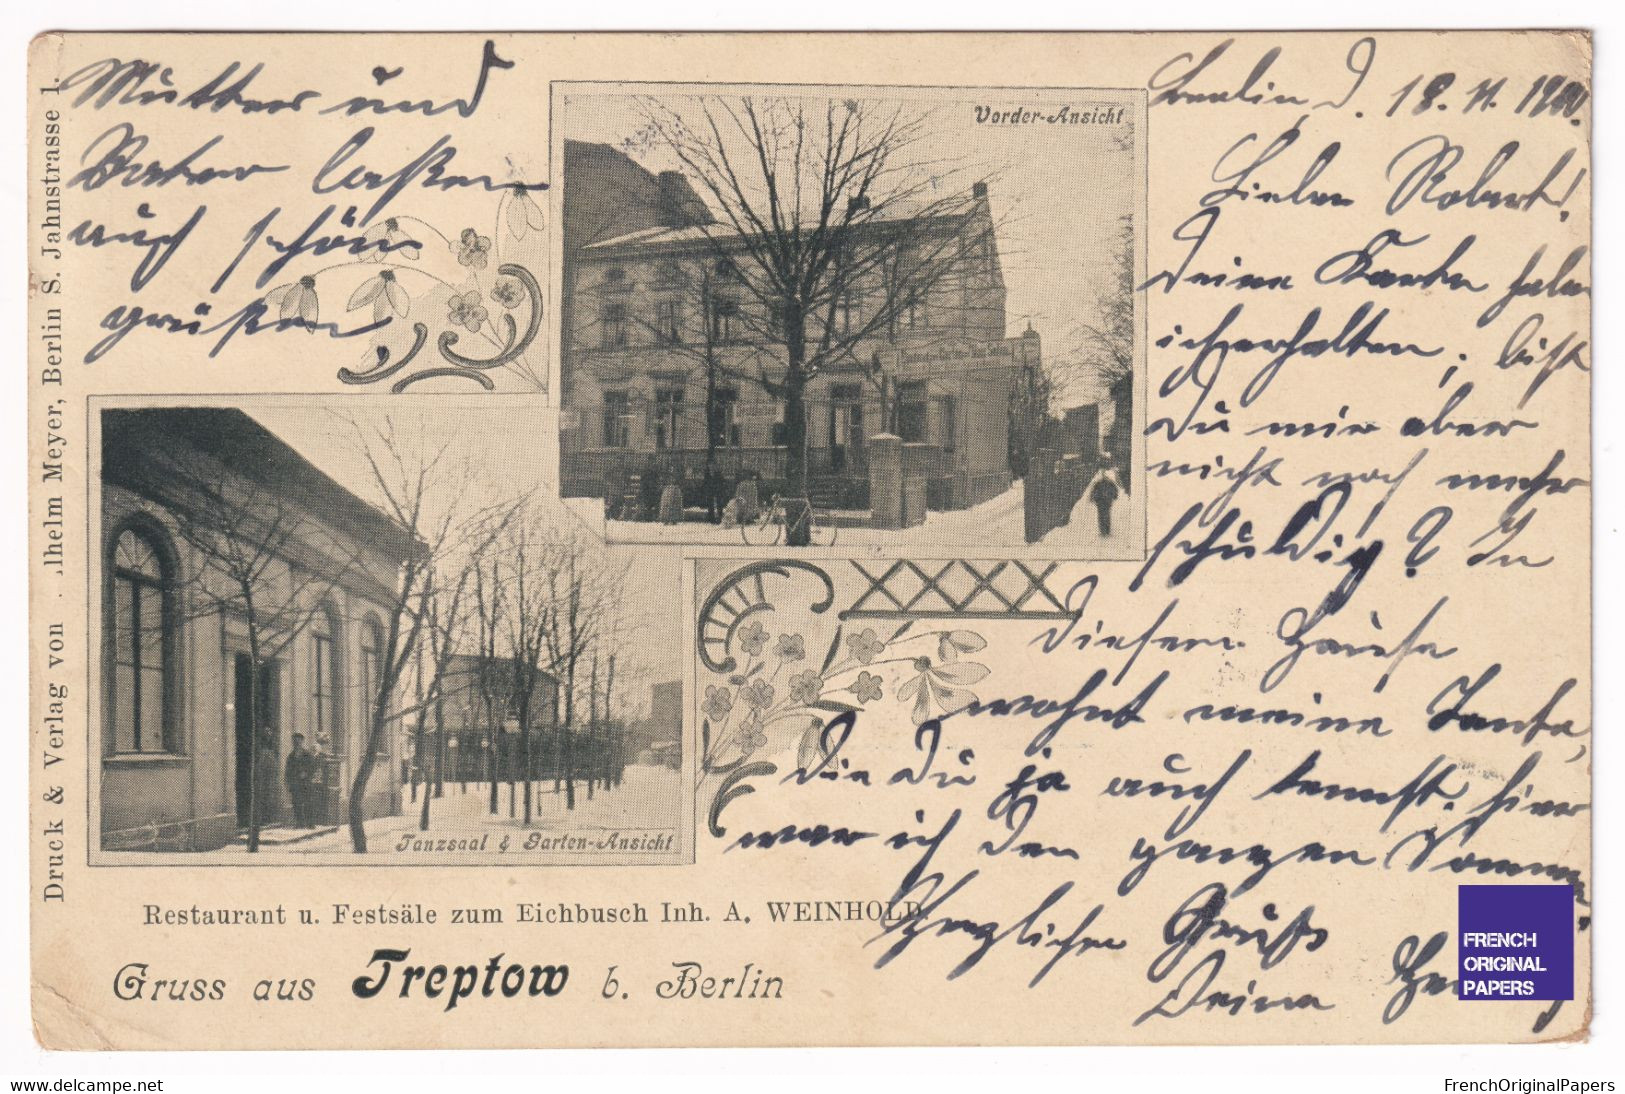 Mutter und
Vater laßen
auch schön
grüßen
Berlin, d. 18.11.1900.
Lieber Robert!
Deine Karte habe
ich erhalten, bist
Du mir aber
nicht noch mehr
schuldig? In
diesem Hause
wohnt meine Tante,
die Du ja auch kennst. hier
war ich den ganzen Sommer
Herzlichen Gruß
Deine
Vorder-Ansicht
Tanzsaal & Garten-Ansicht
Restaurant u. Festsäle zum Eichbusch Inh. A. WEINHOLD.
Gruss aus Treptow b. Berlin
Druck & Verlag von .lhelm Meyer, Berlin S. Jahnstrasse 1.
FRENCH
ORIGINAL
PAPERS
www.delcampe.net
FrenchOriginalPapers